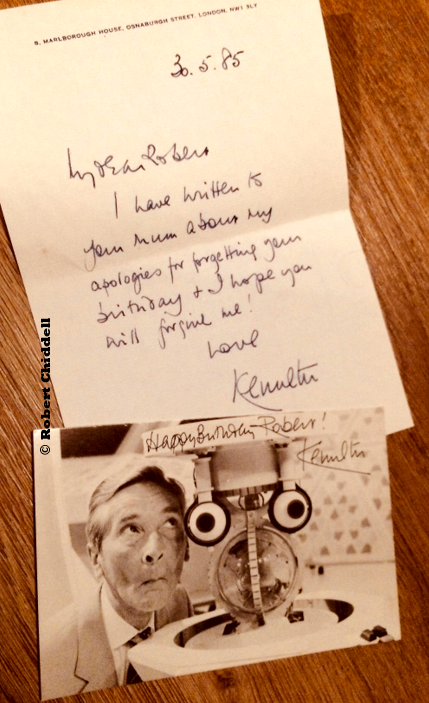 8, MARLBOROUGH HOUSE, OSNABURGH STREET, LONDON, NW1 3LY
30.5.85
My dear Robert
I have written to
your Mum about my
apologies for forgetting your
birthday & I hope you
will forgive me!
Love
Kenneth
Happy Birthday Robert!
Kenneth
© Robert Chiddell